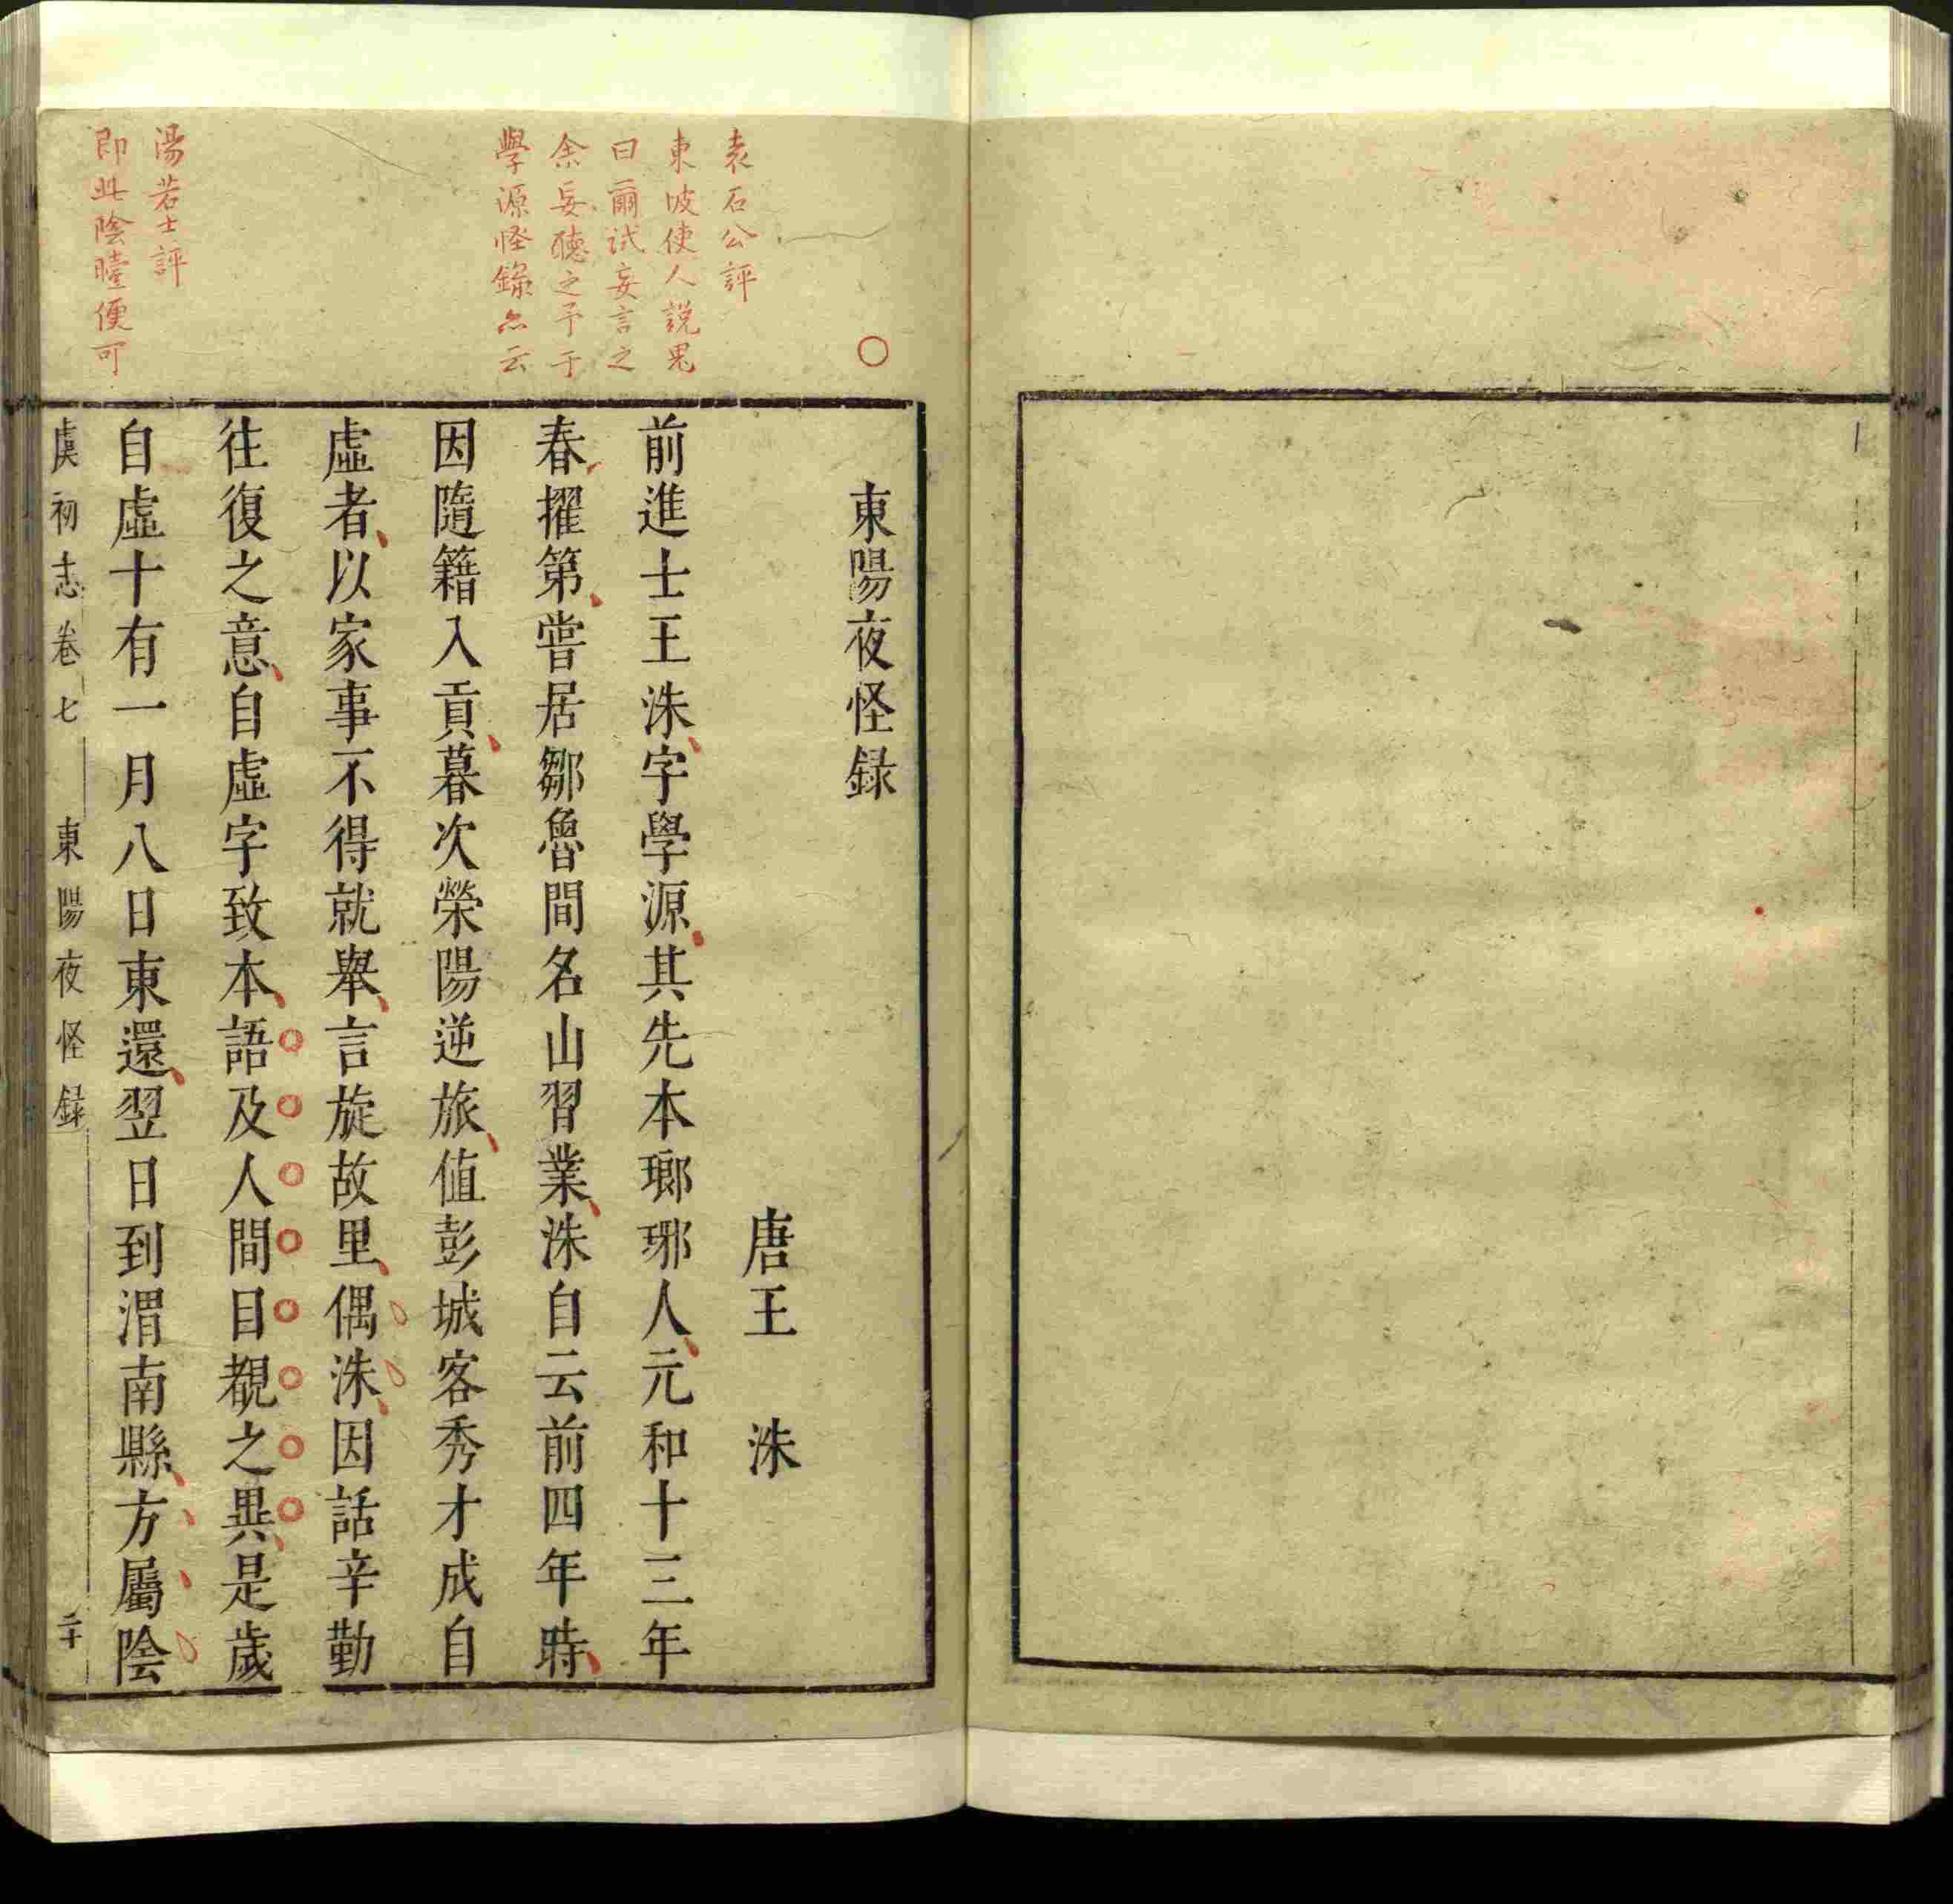 東陽夜怪録
唐王 洙
前進士王洙字學源其先本瑯琊人元和十三年
春擢第嘗居鄒魯間名山習業洙自云前四年時
因隨籍入貢暮次榮陽逆旅值彭城客秀才成自
虛者以家事不得就舉言旋故里偶洙因話辛勤
往復之意自虛字致本語及人間目覩之異是歲
自虛十有一月八日東還翌日到渭南縣方屬陰
虞初志卷七 東陽夜怪録 二十
袁石公評
東坡使人說鬼
曰爾試妄言之
余妄聽之予于
學源怪錄亦云
湯若士評
即此陰曀便可